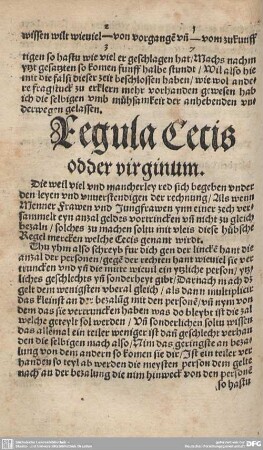 2 1
wissen wilt wieuiel —— von vorgangē vñ —— vom zukunfft
3 7
tigen so hastu wie viel er geschlagen hat / Machs nachm
ytzt gesatzten so komen funff halbe stundt / Wil also hie
mit die fals dieser zeit beschlossen haben / wie wol ande
re fragstuck zu erklern mehr vorhanden gewesen hab
ich die selbigen vmb mühsamkeit der anhebenden vn
derwegen gelassen.
Regula Cecis
odder virginum.
Die weil viel vnd mancherley red sich begeben vnder
den leyen vnd vnuerstendigen der rechnung / Als wenn
Menner Frawen vnd Jungfrawen ynn einer zech ver
sammelt eyn anzal geldes vortrincken vñ nicht zu gleich
bezaln / solches zu machen soltu mit vleis diese hübsche
Regel mercken welche Cecis genant wirdt.
Thu yhm also schreyb fur dich gen der lincke hant die
anzal der personen / gegē der rechten hant wieuiel sie ver
truncken vnd yñ die mitte wieuil ein ytzliche person / ytz
liches geschlechts yñ sonderheyt gibt / Darnach mach d
gelt dem wenigsten vberal gleich / als dann multiplicir
das kleinst an der bezalūg mit den personē / vñ nym von
dem das sie vertruncken haben was do bleybt ist die zal
welche geteylt sol werden / Vñ sonderlichen soltu wissen
das allemal ein teiler weniger ist dañ geschlecht verhan
den die selbigen mach also / Nim das geringste an beza
lung von dem andern so komen sie dir / Ist ein teiler ver
handen so teyl ab werden die meysten person dem gelt
nach an der bezalung die nim hinweck von den personē
so hastu